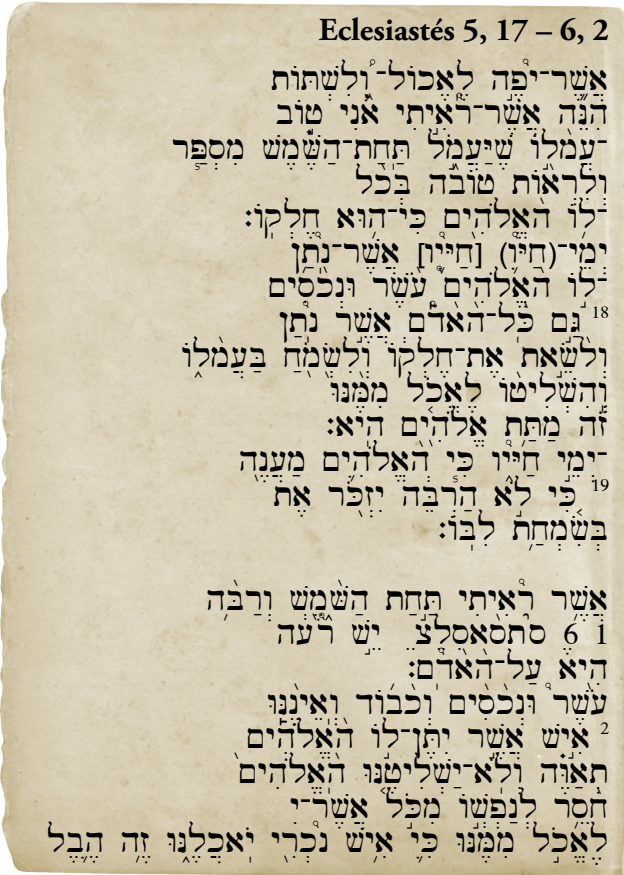 Eclesiastés 5, 17 – 6, 2
אֲשֶׁר־יָפֶה לֶאֱכוֹל־וְלִשְׁתּוֹת
הִנֵּה אֲשֶׁר־רָאִיתִי אָנִי טוֹב
־עֲמָלוֹ שֶׁיַּעֲמֹל תַּחַת־הַשֶּׁמֶשׁ מִסְפַּר
וְלִרְאוֹת טוֹבָה בְּכָל
־לוֹ הָאֱלֹהִים כִּי־הוּא חֶלְקוֹ׃
יְמֵי־(חַיָּו) [חַיָּיו] אֲשֶׁר־נָתַן
־לוֹ הָאֱלֹהִים עֹשֶׁר וּנְכָסִים
18 גַּם כָּל־הָאָדָם אֲשֶׁר נָתַן
וְלָשֵׂאת אֶת־חֶלְקוֹ וְלִשְׂמֹחַ בַּעֲמָלוֹ
וְהִשְׁלִיטוֹ לֶאֱכֹל מִמֶּנּוּ
זֹה מַתַּת אֱלֹהִים הִיא׃
־יְמֵי חַיָּיו כִּי הָאֱלֹהִים מַעֲנֶה
19 כִּי לֹא הַרְבֵּה יִזְכֹּר אֶת
בְּשִׂמְחַת לִבּוֹ׃
אֲשֶׁר רָאִיתִי תַּחַת הַשָּׁמֶשׁ וְרַבָּה
1 6 סתסאסלצ יֵשׁ רָעָה
הִיא עַל־הָאָדָם׃
עֹשֶׁר וּנְכָסִים וְכָבוֹד וְאֵינֶנּוּ
2 אִישׁ אֲשֶׁר יִתֶּן־לוֹ הָאֱלֹהִים
תְאַוֶּה וְלֹא־יַשְׁלִיטֶנּוּ הָאֱלֹהִים
חָסֵר לְנַפְשׁוֹ מִכֹּל אֲשֶׁר־יִ
לֶאֱכֹל מִמֶּנּוּ כִּי אִישׁ נָכְרִי יֹאכֲלֶנּוּ זֶה הֶבֶל